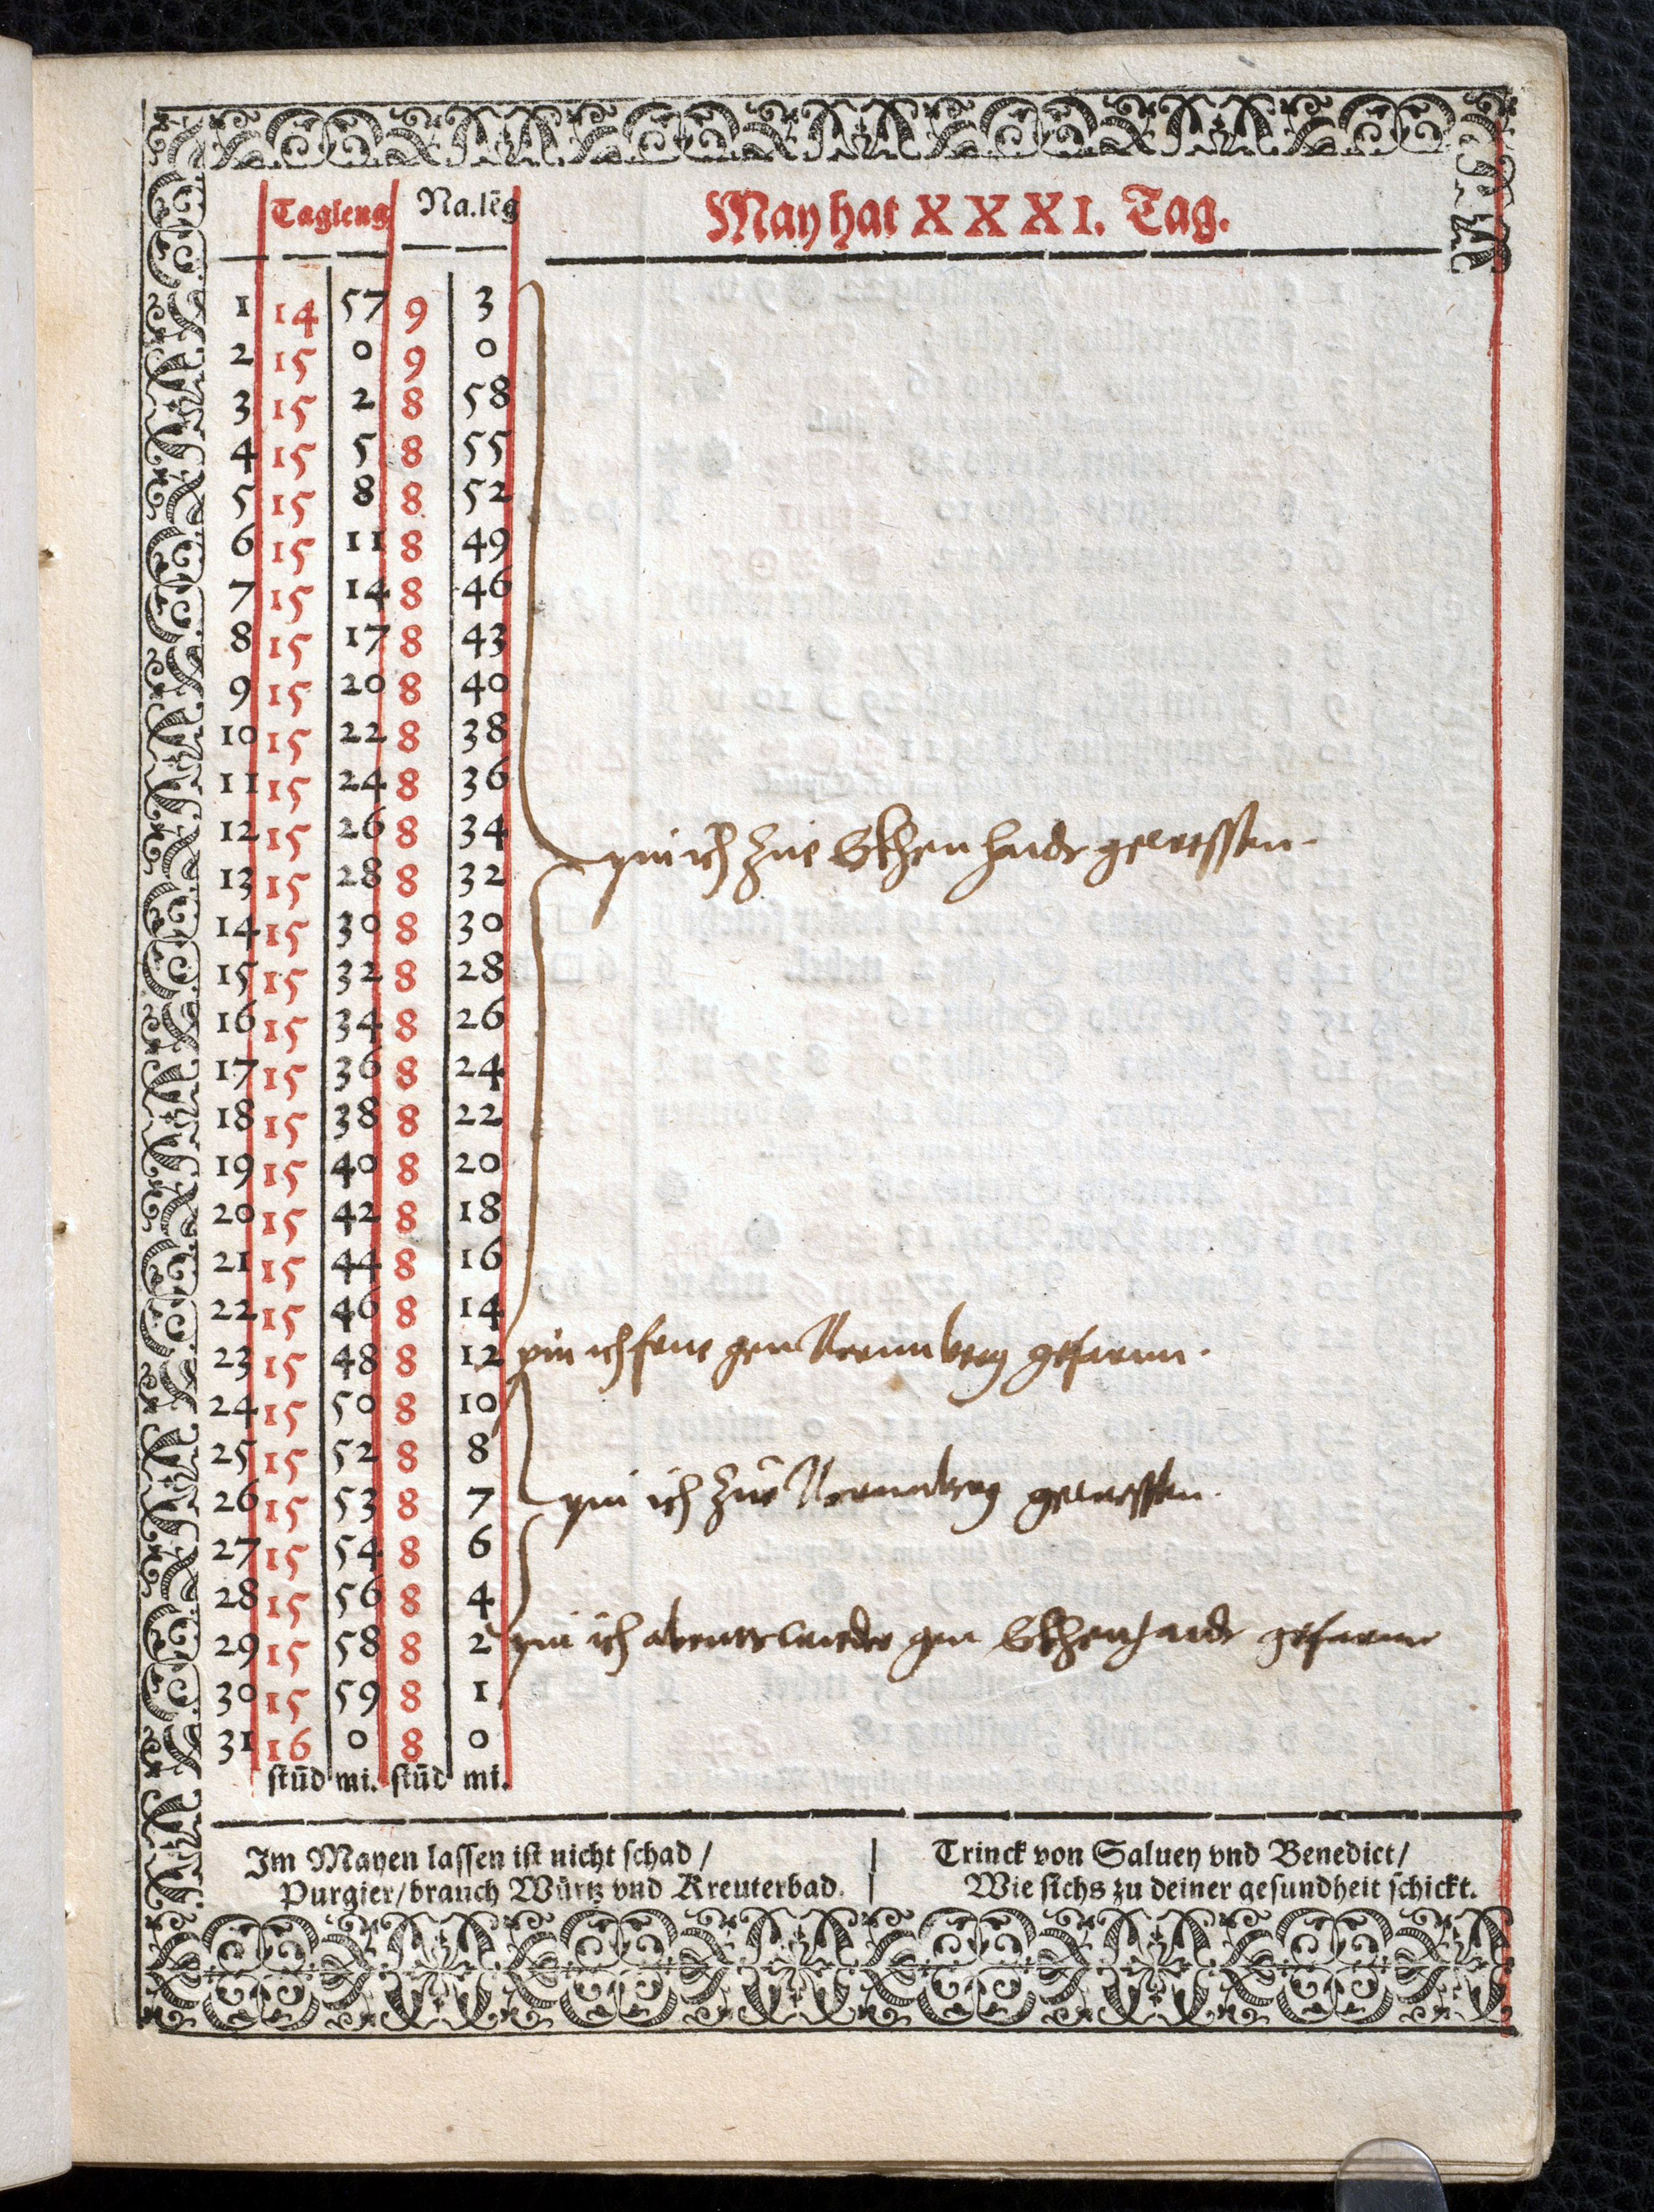 Tagleng Na.lēg May hat XXXI. Tag.
1 14 57 9 3
2 15 0 9 0
3 15 2 8 58
4 15 5 8 55
5 15 8 8 52
6 15 11 8 49
7 15 14 8 46
8 15 17 8 43
9 15 20 8 40
10 15 22 8 38
11 15 24 8 36
12 15 26 8 34
pin ich zue Ekhenhaide gewessen.
13 15 28 8 32
14 15 30 8 30
15 15 32 8 28
16 15 34 8 26
17 15 36 8 24
18 15 38 8 22
19 15 40 8 20
20 15 42 8 18
21 15 44 8 16
22 15 46 8 14
23 15 48 8 12 pin ich frue gen Nermberg gefarnn.
24 15 50 8 10
25 15 52 8 8
26 15 53 8 7 pin ich zue Nermberg gewessen.
27 15 54 8 6
28 15 56 8 4
29 15 58 8 2 pin ich abents wieder gen Ekhenhaide gefarnn
30 15 59 8 1
31 16 0 8 0
stūd mi. stūd mi.
Im Mayen lassen ist nicht schad /
Purgier / brauch Würtz vnd Kreuterbad.
Trinck von Saluey vnd Benedict /
Wie sichs zu deiner gesundheit schickt.